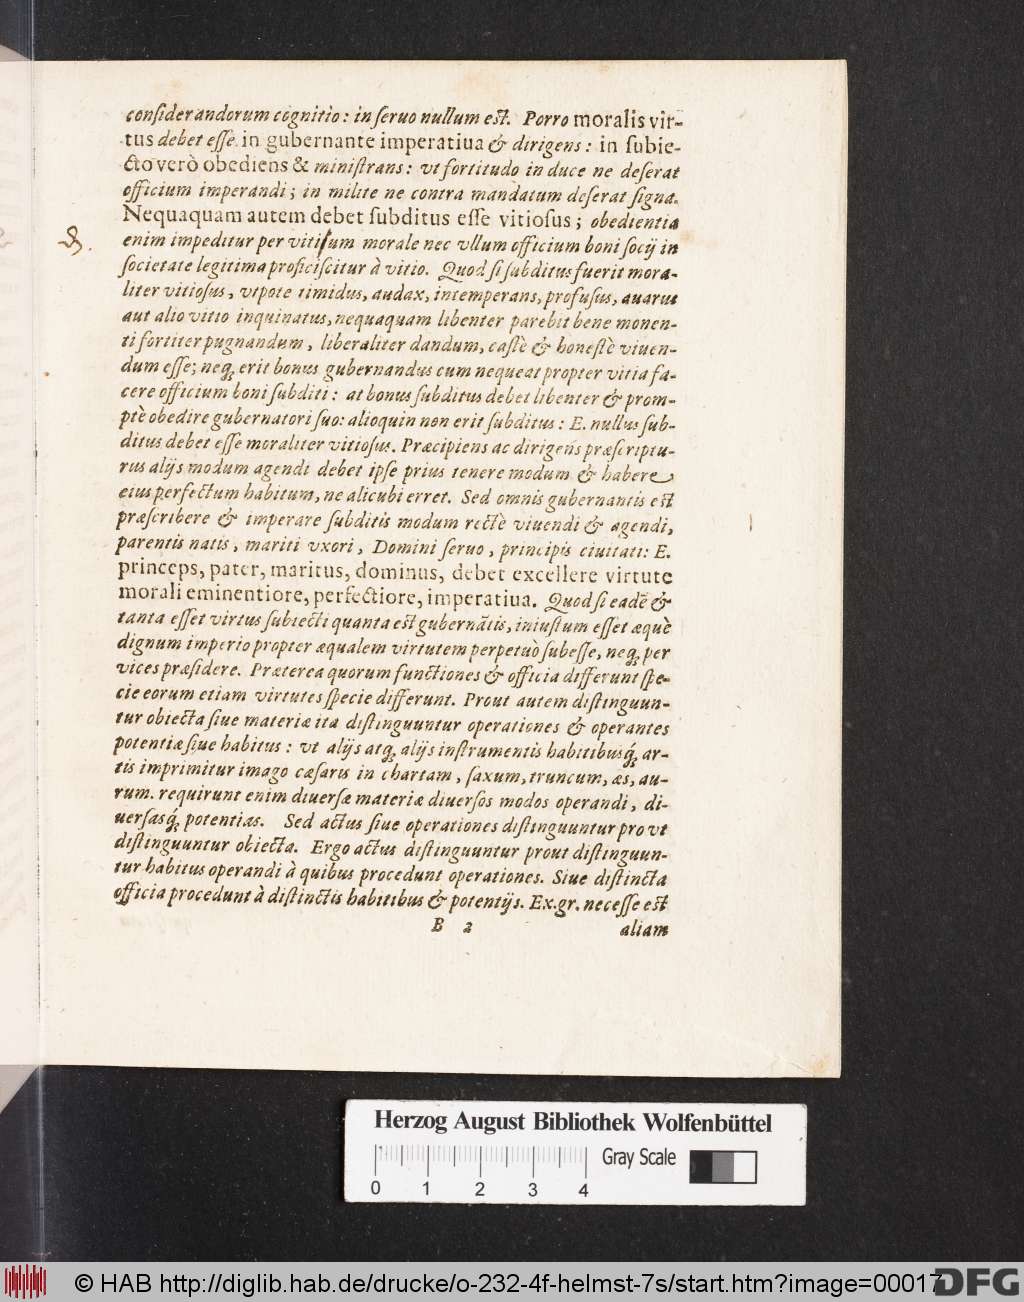 conſiderandorum cognitio: in ſeruo nullum est. Porro moralis vir-
tus debet eſſe in gubernante imperatiua & dirigens: in ſubie-
cto verò obediens & miniſtrans: vt fortitudo in duce ne deſerat
officium imperandi; in milite ne contra mandatum deſerat ſigna.
Nequaquam autem debet ſubditus eſſe vitioſus; obedientia
enim impeditur per vitiſum morale nec vllum officium boni ſocij in
ſocietate legitima proficiſcitur à vitio. Quod ſi ſubditus fuerit mora-
liter vitioſus, vtpote timidus, audax, intemperans, profuſus, auarus
aut alio vitio inquinatus, nequaquam libenter parebit bene monen-
ti fortiter pugnandum, liberaliter dandum, castè & honestè viuen-
dum eſſe; neq; erit bonus gubernandus cum nequeat propter vitia fa-
cere officium boni ſubditi: at bonus ſubditus debet libenter & prom-
ptè obedire gubernatori ſuo: alioquin non erit ſubditus: E. nullus ſub-
ditus debet eſſe moraliter vitioſus. Præcipiens ac dirigens præſcriptu-
rus alijs modum agendi debet ipſe prius tenere modum & habere
eius perfectum habitum, ne alicubi erret. Sed omnis gubernantis est
præſcribere & imperare ſubditis modum rectè viuendi & agendi,
parentis natis, mariti vxori, Domini ſeruo, principis ciuitati: E.
princeps, pater, maritus, dominus, debet excellere virtute
morali eminentiore, perfectiore, imperatiua. Quod ſi eadē &
tanta eſſet virtus ſubiecti quanta est gubernātis, iniuſtum eſſet æquè
dignum imperio propter æqualem virtutem perpetuò ſubeſſe, neq; per
vices præſidere. Præterea quorum functiones & officia differunt ſpe-
cie eorum etiam virtutes ſpecie differunt. Prout autem diſtinguun-
tur obiecta ſiue materiæ ita diſtinguuntur operationes & operantes
potentiæ ſiue habitus: vt alijs atq; alijs inſtrumentis habitibusq́; ar-
tis imprimitur imago cæſaris in chartam, ſaxum, truncum, æs, au-
rum. requirunt enim diuerſæ materiæ diuerſos modos operandi, di-
uerſasq́; potentias. Sed actus ſiue operationes diſtinguuntur pro vt
diſtinguuntur obiecta. Ergo actus diſtinguuntur prout diſtinguun-
tur habitus operandi à quibus procedunt operationes. Siue diſtincta
officia procedunt à diſtinctis habitibus & potentijs. Ex.gr. neceſſe est
B 2 aliam
Herzog August Bibliothek Wolfenbüttel
Gray Scale
0 1 2 3 4
© HAB http://diglib.hab.de/drucke/o-232-4f-helmst-7s/start.htm?image=00017
DFG